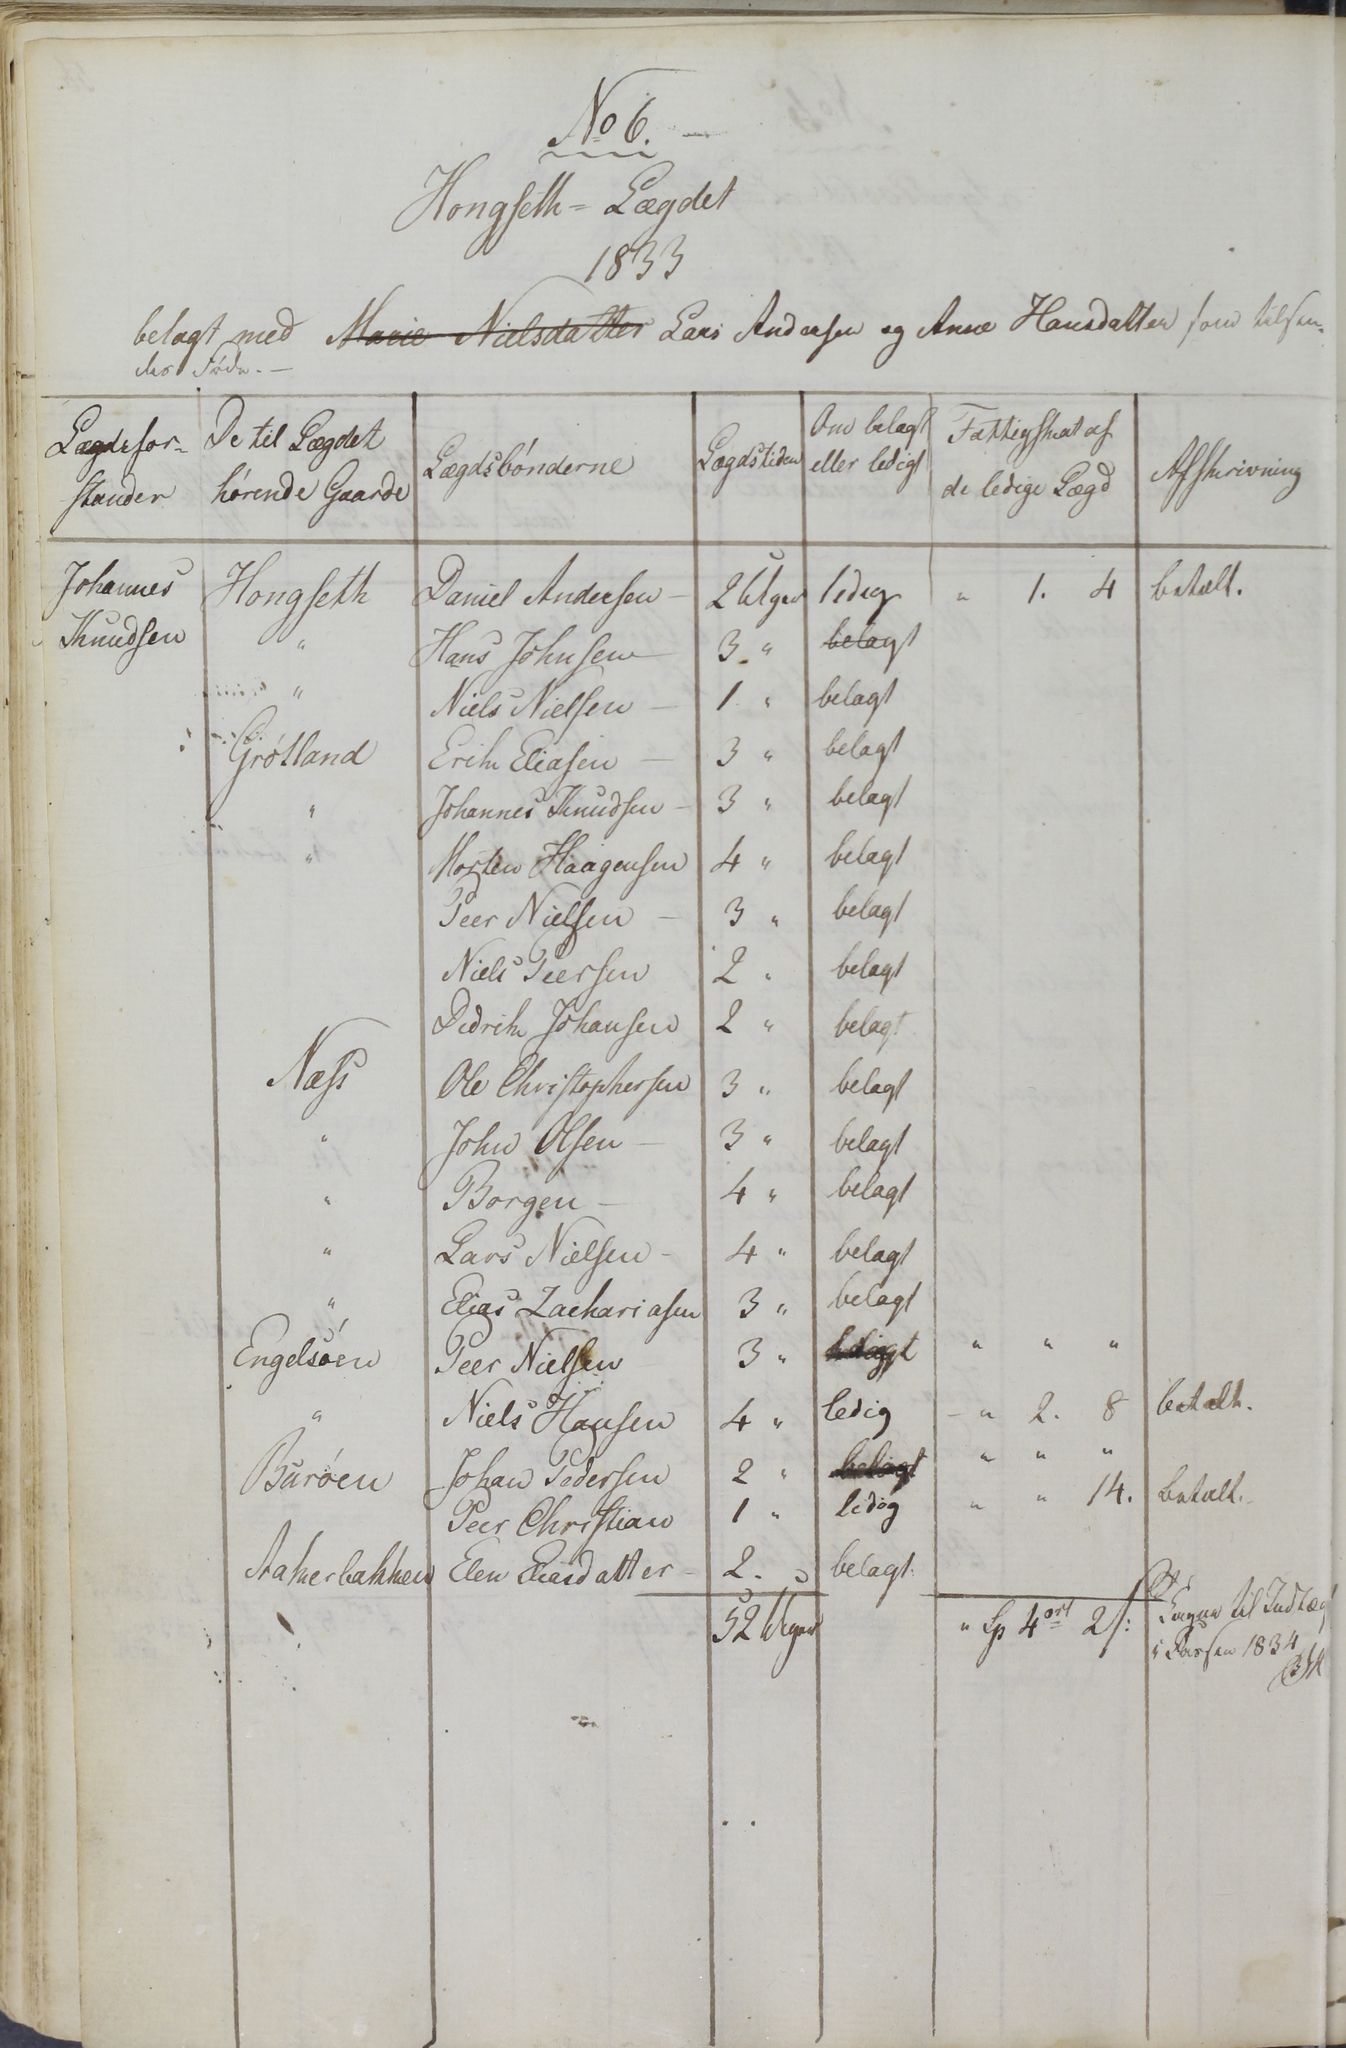 No 6.
Hongseth = Lægdet
1833
belagt med Marie Nielsdatter Lars Andersen og Anne Hansdatter som tilsen-
des Føde. —
Lægdsfor- De til Lægdet Lægdsbönderne Lægdstiden Om belagt Fattigskat af Afskrivning
stander hörende Gaarde eller ledigt de ledige Lægd
Johannes Hongseth Daniel Andersen — 2 Uger ledig " 1. 4 betalt.
Knudsen " Hans Johnsen — 3 " belagt
" Niels Nielsen — 1 " belagt
Grötland Erik Eliasen — 3 " belagt
" Johannes Knudsen — 3 " belagt
" Morten Haagensen 4 " belagt
Peer Nielsen — 3 " belagt
Niels Peersen 2 " belagt
Didrik Johansen 2 " belagt
Næss Ole Christophersen 3 " belagt
" John Olsen — 3 " belagt
" Borgen — 4 " belagt
" Lars Nielsen — 4 " belagt
" Elias Zachariasen 3 " belagt
Engelsöen Peer Nielsen 3 " " " "
" Niels Hansen 4 " ledig — " 2. 8 betalt.
Buröen Johan Pedersen 2 " belagt " " "
Peer Christian 1 " ledig " " 14. betalt.
Aakerbakken Elen Eliasdatter — 2. " belagt.
52 Uger " Sp 4 ort 2 s: til Indtægt
i Kassen 1834